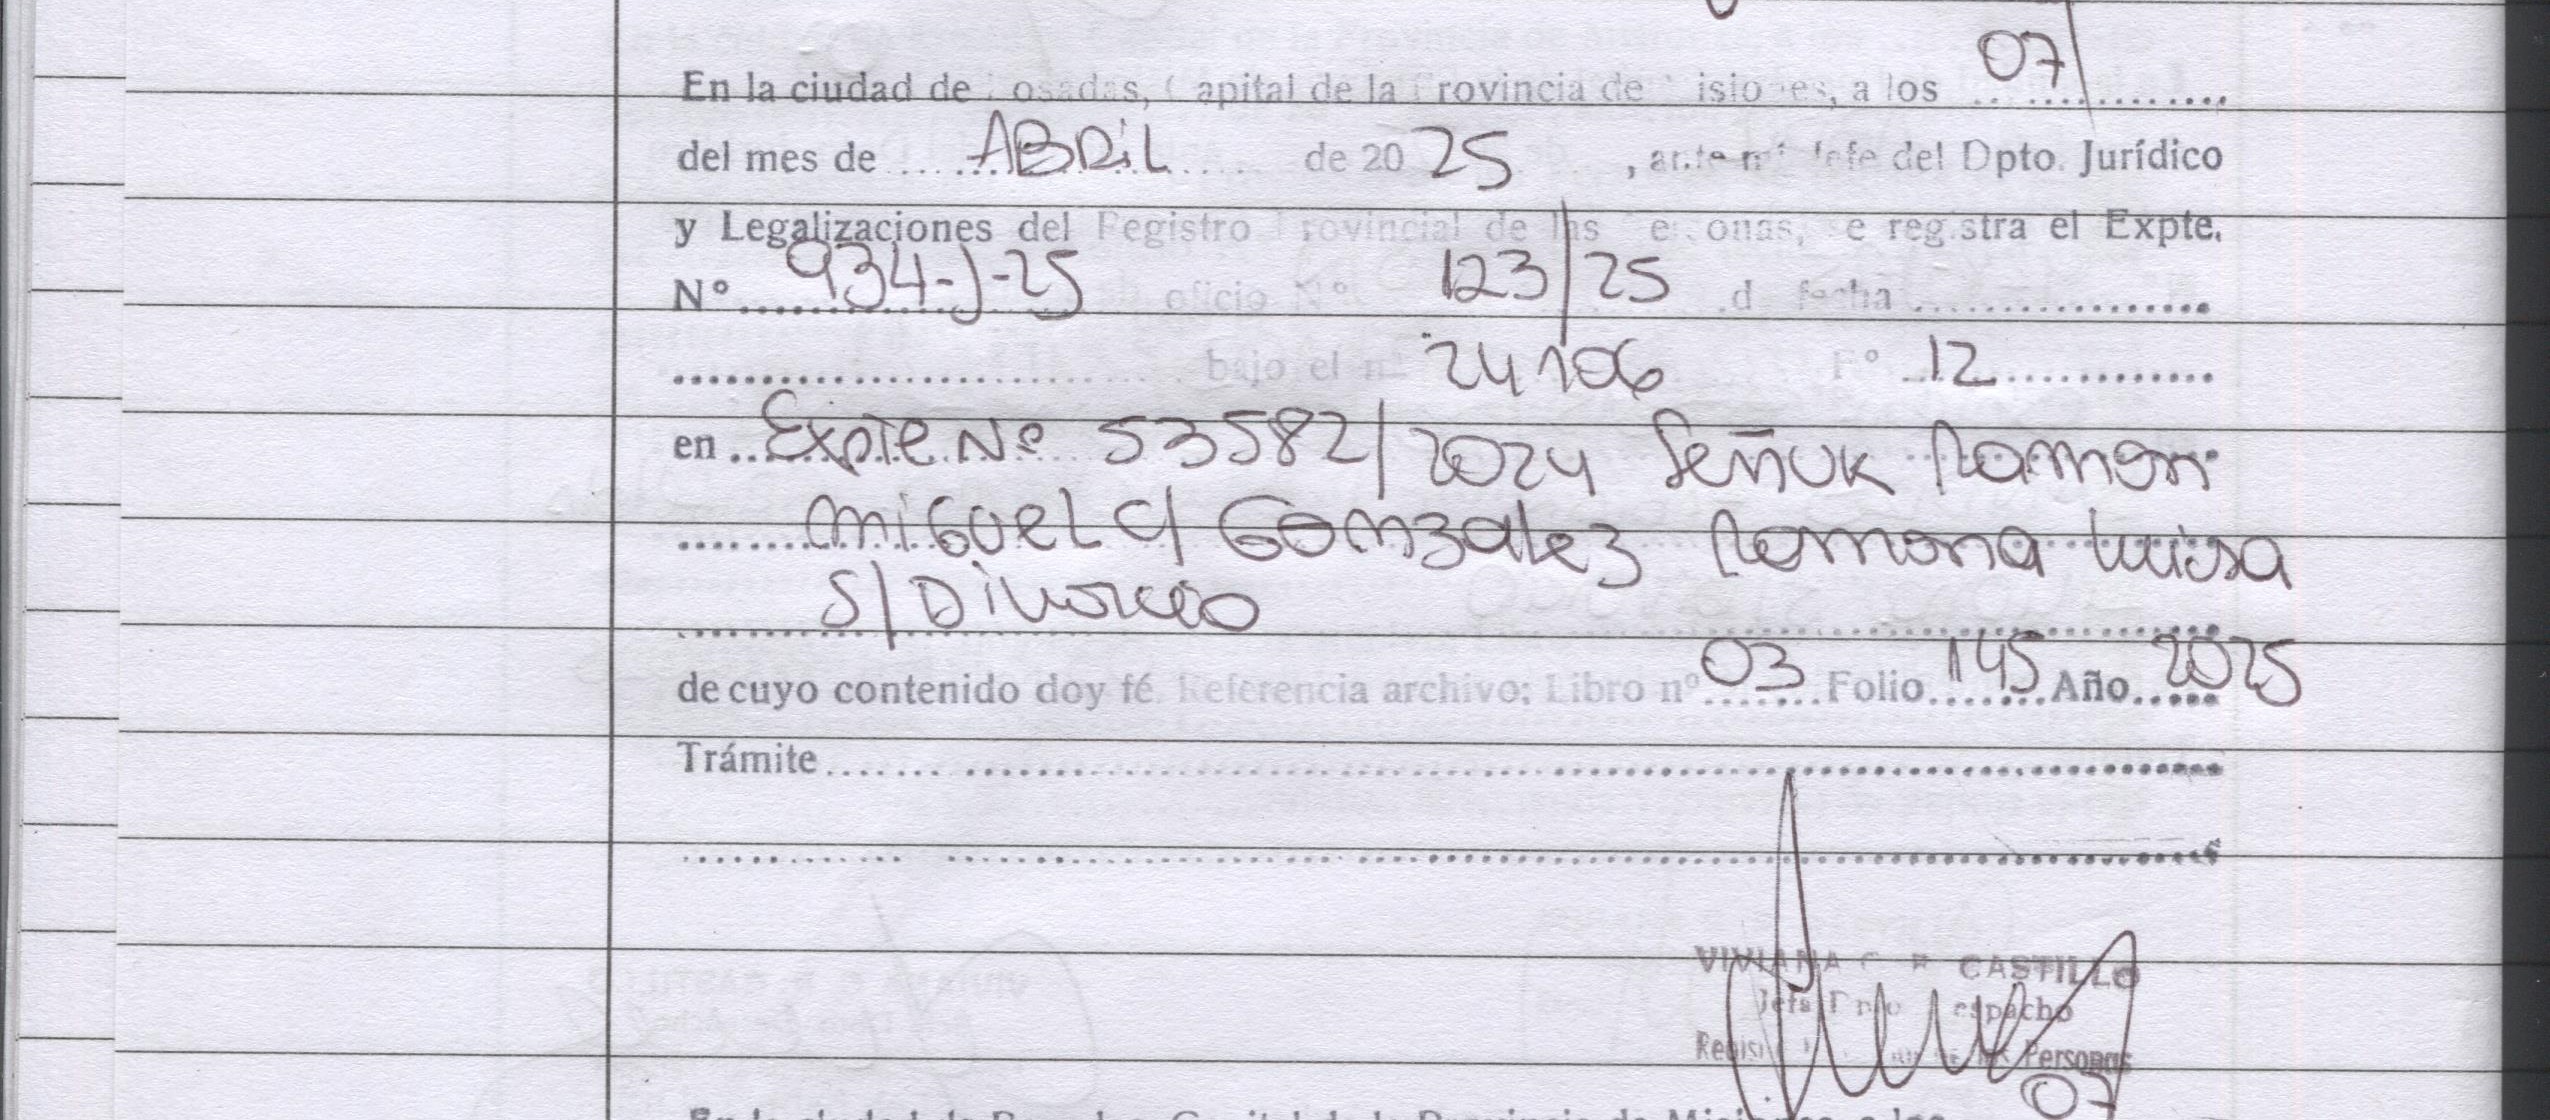 07/
En la ciudad de Posadas, Capital de la Provincia de Misiones, a los
del mes de ABRIL de 20 25, ante mi Jefe del Dpto. Jurídico
y Legalizaciones del Registro Provincial de las Personas, se registra el Expte.
N° 934-J-25 oficio N° 123/25 de fecha
bajo el n° 24106 F° 12
en Expte Nº 53582/2024 Señuk Ramon
Miguel c/ Gonzalez Ramona Luisa
S/ Divorcio
de cuyo contenido doy fé. Referencia archivo: Libro nº 03 Folio 145 Año 2025
Trámite
VIVIANA CASTILLO
Jefa Dpto Despacho
Personas
07
En la ciudad de Posadas, Capital de la Provincia de Misiones, a los